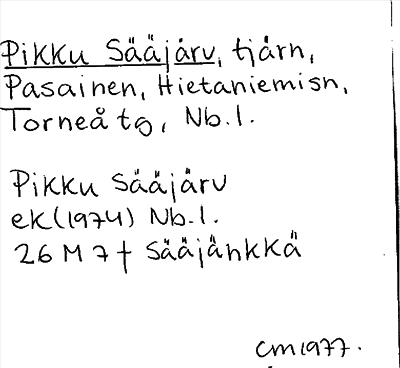 Pikku Sääjärv, tjärn,
Pasainen, Hietaniemisn,
Torneå tg, Nb.l.
Pikku Sääjärv
ek (1974) Nb.l.
26 M 7 f Sääjänkkä
CM 1977.